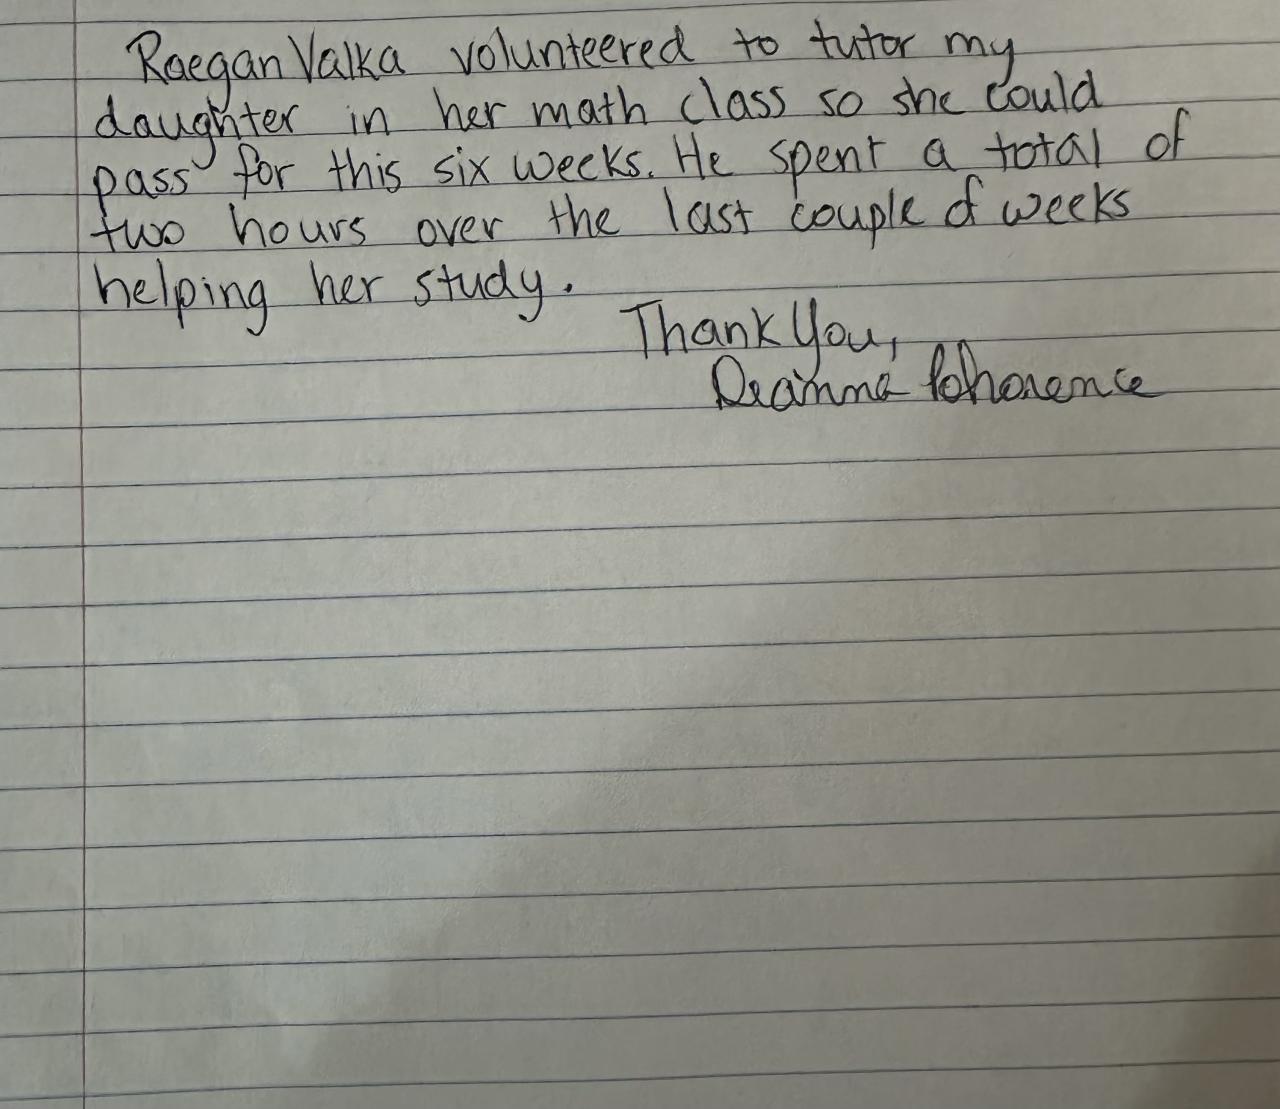 Raegan Valka volunteered to tutor my
daughter in her math class so she could
pass for this six weeks. He spent a total of
two hours over the last couple of weeks
helping her study.
Thank You,
Deanna